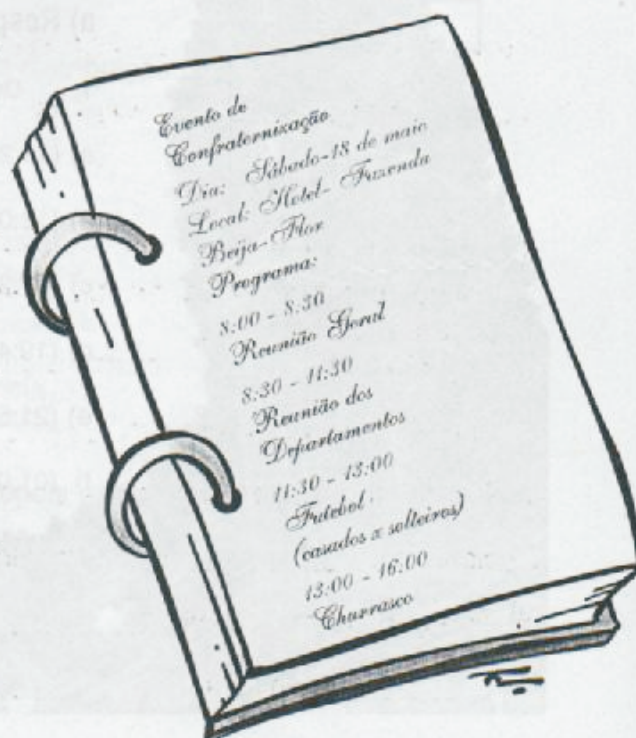 Evento de
Confraternização
Dia: Sábado-18 de maio
Local: Hotel- Fazenda
Beija-Flor
Programa:
8:00 - 8:30
Reunião Geral
8:30 - 11:30
Reunião dos
Departamentos
11:30 - 13:00
Futebol
(casados x solteiros)
13:00 - 16:00
Churrasco
a) Resp